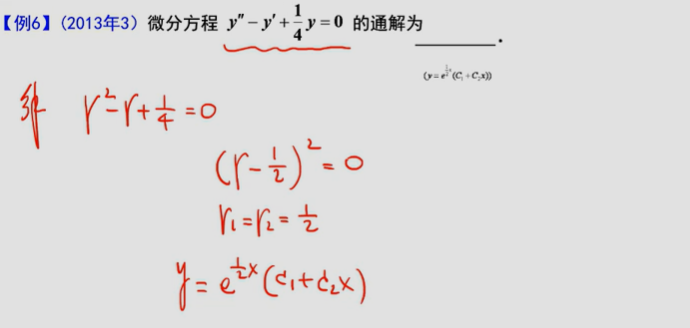 【例6】(2013年3) 微分方程 y″ − y′ + 1/4 y = 0 的通解为 ______.
(y = e^{1/2 x}(C₁ + C₂x))
解 r² − r + 1/4 = 0
(r − 1/2)² = 0
r₁ = r₂ = 1/2
y = e^{1/2 x}(C₁ + C₂x)